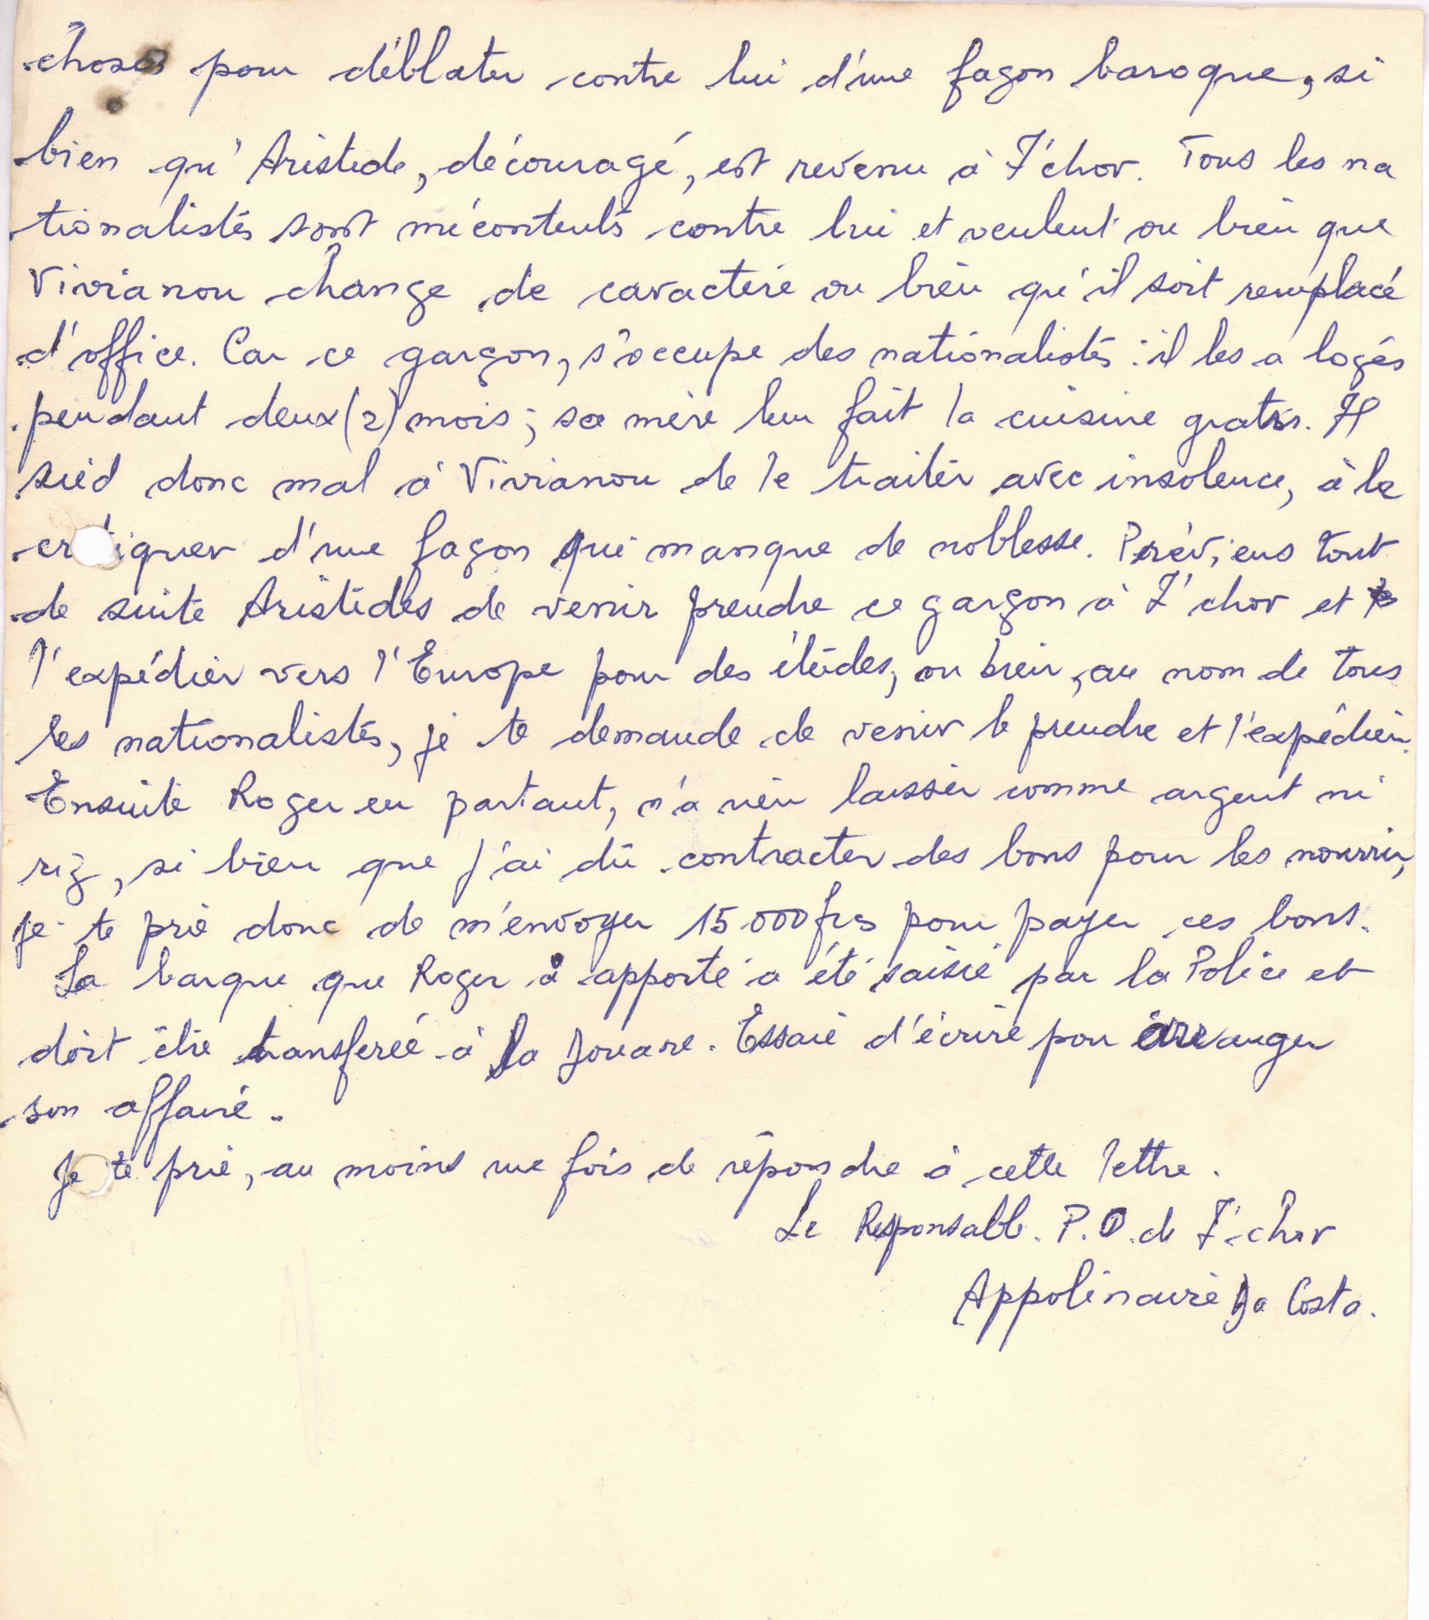 choses pour déblater contre lui d'une façon baroque, si
bien qu'Aristide, découragé, est revenu à Z'chor. Tous les na
tionalistes sont mécontents contre lui et veulent ou bien que
Vivianou change de caractère ou bien qu'il soit remplacé
d'office. Car ce garçon, s'occupe des nationalistes : il les a logés
pendant deux (2) mois ; sa mère leur fait la cuisine gratis. Il
sied donc mal à Vivianou de le traiter avec insolence, à le
critiquer d'une façon qui manque de noblesse. Préviens tout
de suite Aristides de venir prendre ce garçon à Z'chor et
l'expédier vers l'Europe pour des études, ou bien, au nom de tous
les nationalistes, je te demande de venir le prendre et l'expédier.
Ensuite Roger en partant, n'a rien laisser comme argent ni
riz, si bien que j'ai dû contracter des bons pour les nourrir,
je te prie donc de m'envoyer 15.000 frs pour payer ces bons.
La barque que Roger a apporté a été saisie par la Police et
doit être transfereé à la Douane. Essaie d'écrire pour arranger
son affaire.
Je te prie, au moins une fois de répondre à cette lettre.
Le Responsable. P.O. de Z'chor
Appolinaire Da Costa.